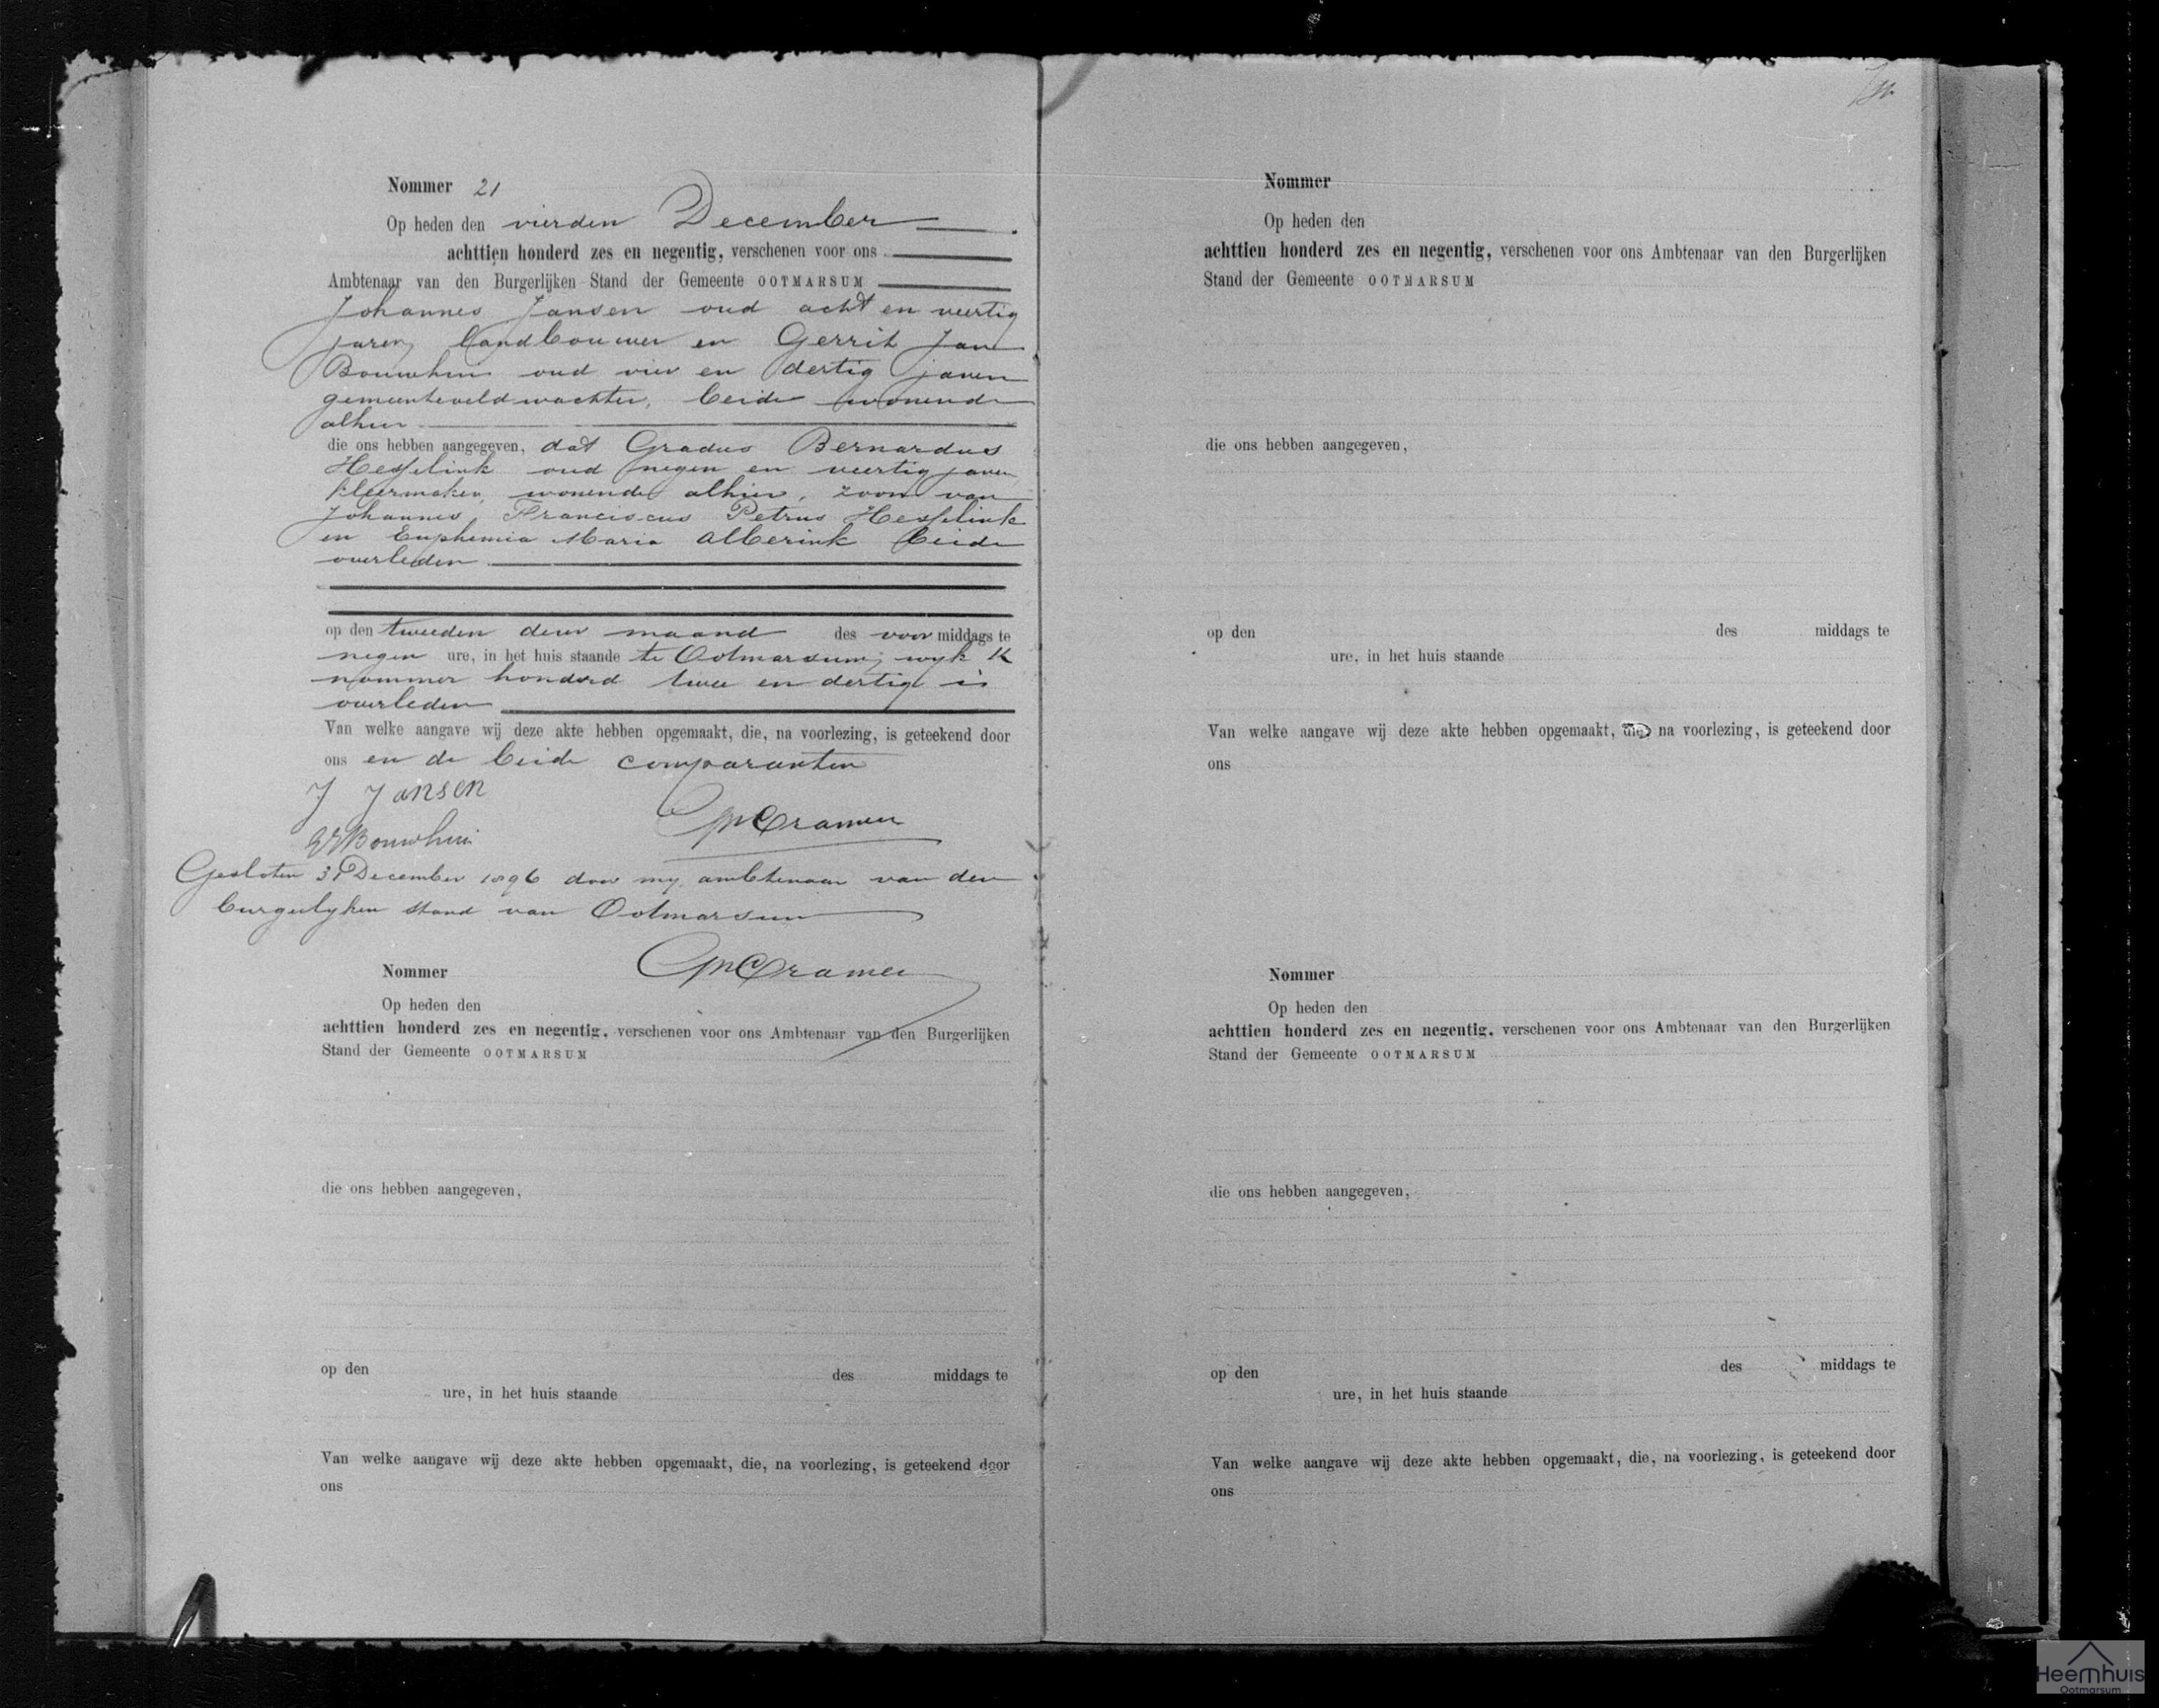 Nommer 21
Op heden den vierden December
achttien honderd zes en negentig, verschenen voor ons
Ambtenaar van den Burgerlijken Stand der Gemeente OOTMARSUM
Johannes Jansen oud acht en veertig
jaren, landbouwer en Gerrit Jan
Bouwhuis oud vier en dertig jaren
gemeenteveldwachter, beide wonende
alhier
die ons hebben aangegeven, dat Gradus Bernardus
Hesselink oud negen en veertig jaren
kleermaker, wonende alhier, zoon van
Johannes Franciscus Petrus Hesselink
en Euphemia Maria Alberink beide
overleden
op den tweeden dezer maand des voor middags te
negen ure, in het huis staande te Ootmarsum, wyk K
nommer honderd twee en dertig is
overleden
Van welke aangave wij deze akte hebben opgemaakt, die, na voorlezing, is geteekend door
ons en de beide comparanten
J Jansen
Cramer
Bouwhuis
Gesloten 31 December 1896 door my ambtenaar van den
burgerlyken stand van Ootmarsum
Cramer
Nommer
Op heden den
achttien honderd zes en negentig, verschenen voor ons Ambtenaar van den Burgerlijken
Stand der Gemeente OOTMARSUM
die ons hebben aangegeven,
op den des middags te
ure, in het huis staande
Van welke aangave wij deze akte hebben opgemaakt, die, na voorlezing, is geteekend door
ons
Nommer
Op heden den
achttien honderd zes en negentig, verschenen voor ons Ambtenaar van den Burgerlijken
Stand der Gemeente OOTMARSUM
die ons hebben aangegeven,
op den des middags te
ure, in het huis staande
Van welke aangave wij deze akte hebben opgemaakt, die, na voorlezing, is geteekend door
ons
Nommer
Op heden den
achttien honderd zes en negentig, verschenen voor ons Ambtenaar van den Burgerlijken
Stand der Gemeente OOTMARSUM
die ons hebben aangegeven,
op den des middags te
ure, in het huis staande
Van welke aangave wij deze akte hebben opgemaakt, die, na voorlezing, is geteekend door
ons
Heemhuis
Ootmarsum